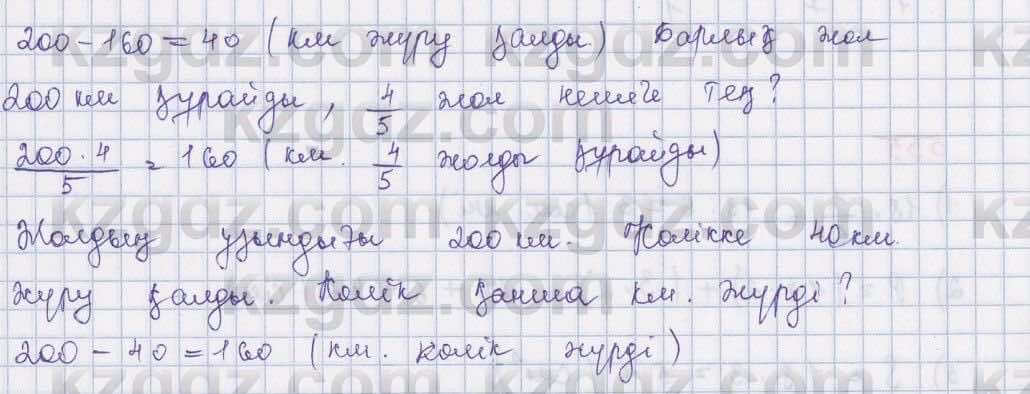 200 - 160 = 40 (км жүру қалды) Барлық жол
200 км құрайды, 4/5 жол нешеге тең?
200 · 4 / 5 = 160 (км. 4/5 жолды құрайды)
Жолдың ұзындығы 200 км. Көлікке 40 км.
жүру қалды. Көлік қанша км. жүрді?
200 - 40 = 160 (км. көлік жүрді)